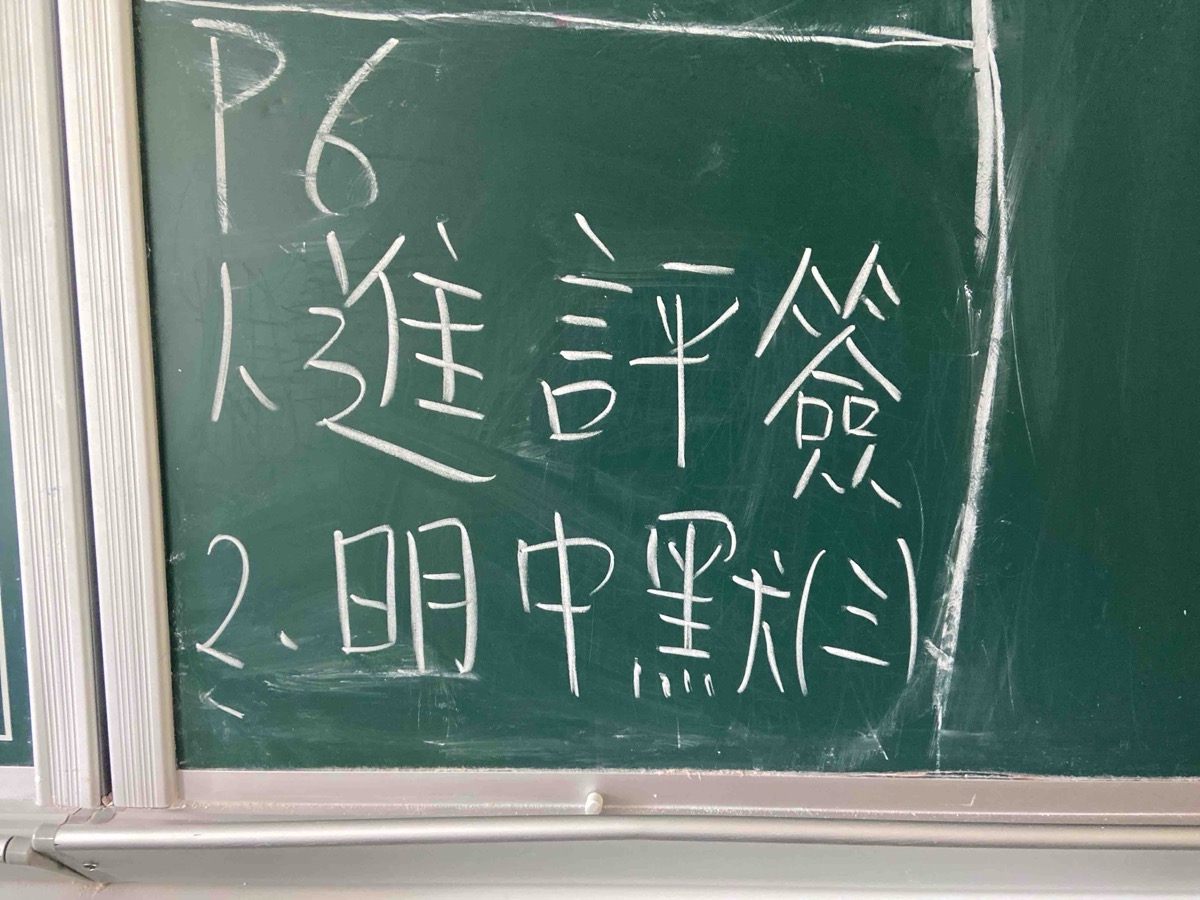 P6
1、進評簽
2、明中默(三)